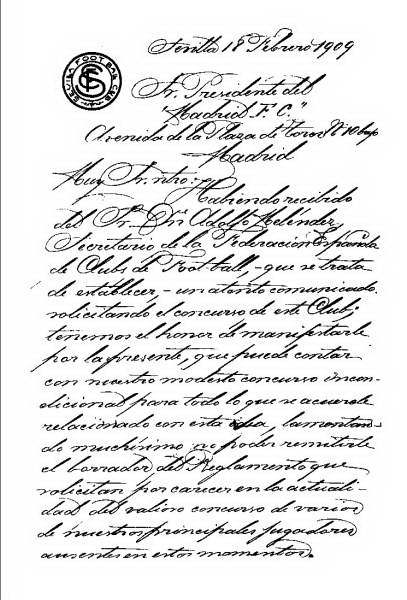 Sevilla 18 Febrero 1909
SEVILLA FOOTBALL CLUB
Sr. Presidente del
"Madrid F. C."
Avenida de la Plaza de toros Nº 10 bajo
Madrid
Muy Sr. ntro:
Habiendo recibido
del Sr. Dn Adolfo Meléndez,
Secretario de la Federación Española
de Clubs de Football, - que se trata
de establecer, - un atento comunicado
solicitando el concurso de este Club;
tenemos el honor de manifestarle
por la presente, que puede contar
con nuestro modesto concurso incon-
dicional para todo lo que se acuerde
relacionado con esta idea, lamentan-
do muchísimo no poder remitirle
el borrador del Reglamento que
solicitan por carecer en la actuali-
dad del valioso concurso de varios
de nuestros principales jugadores
ausentes en estos momentos.